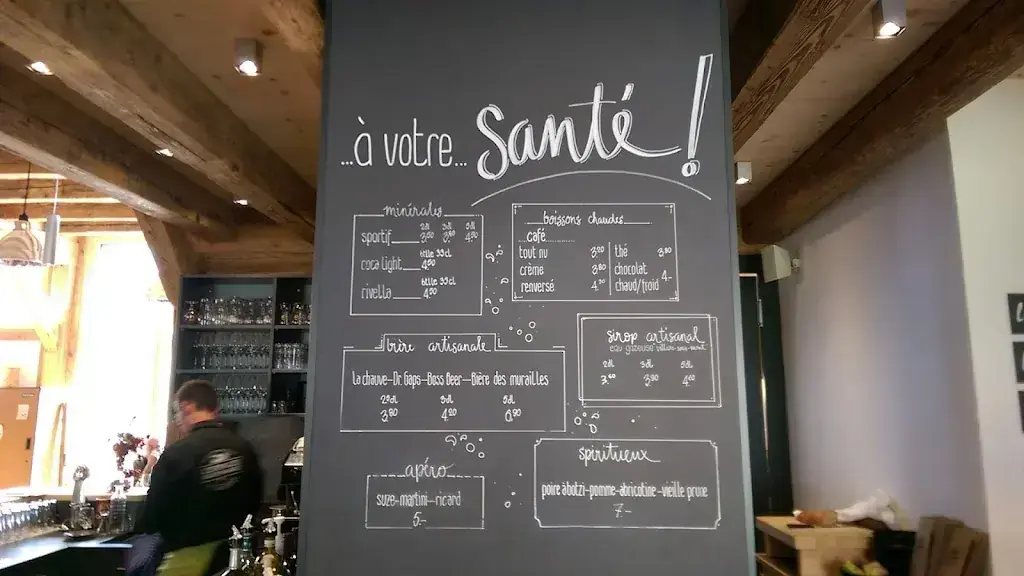 ...à votre... Santé!
minérales
2dl 3dl 5dl
sportif 3.20 3.80 4.80
btlle 33cl
coca light 4.20
btlle 33cl
rivella 4.20
boissons chaudes
café
tout nu 3.20
crème 3.80
renversé 4.20
thé 3.80
chocolat
chaud/froid 4.-
bière artisanale
la chauve-Dr. Gaps-Boss Beer-Bière des murailles
25cl 3dl 5dl
3.80 4.20 6.80
sirop artisanal
eau gazeuse
2dl 3dl 5dl
3.80 4.60
apéro
suze-martini-ricard
5.-
spiritueux
poire à botzi-pomme-abricotine-vieille prune
7.-